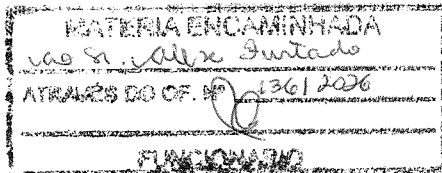 MATERIA ENCAMINHADA
ao Sr. Alex Furtado
ATRAVÉS DO OF. Nº 136/2026
FUNCIONÁRIO